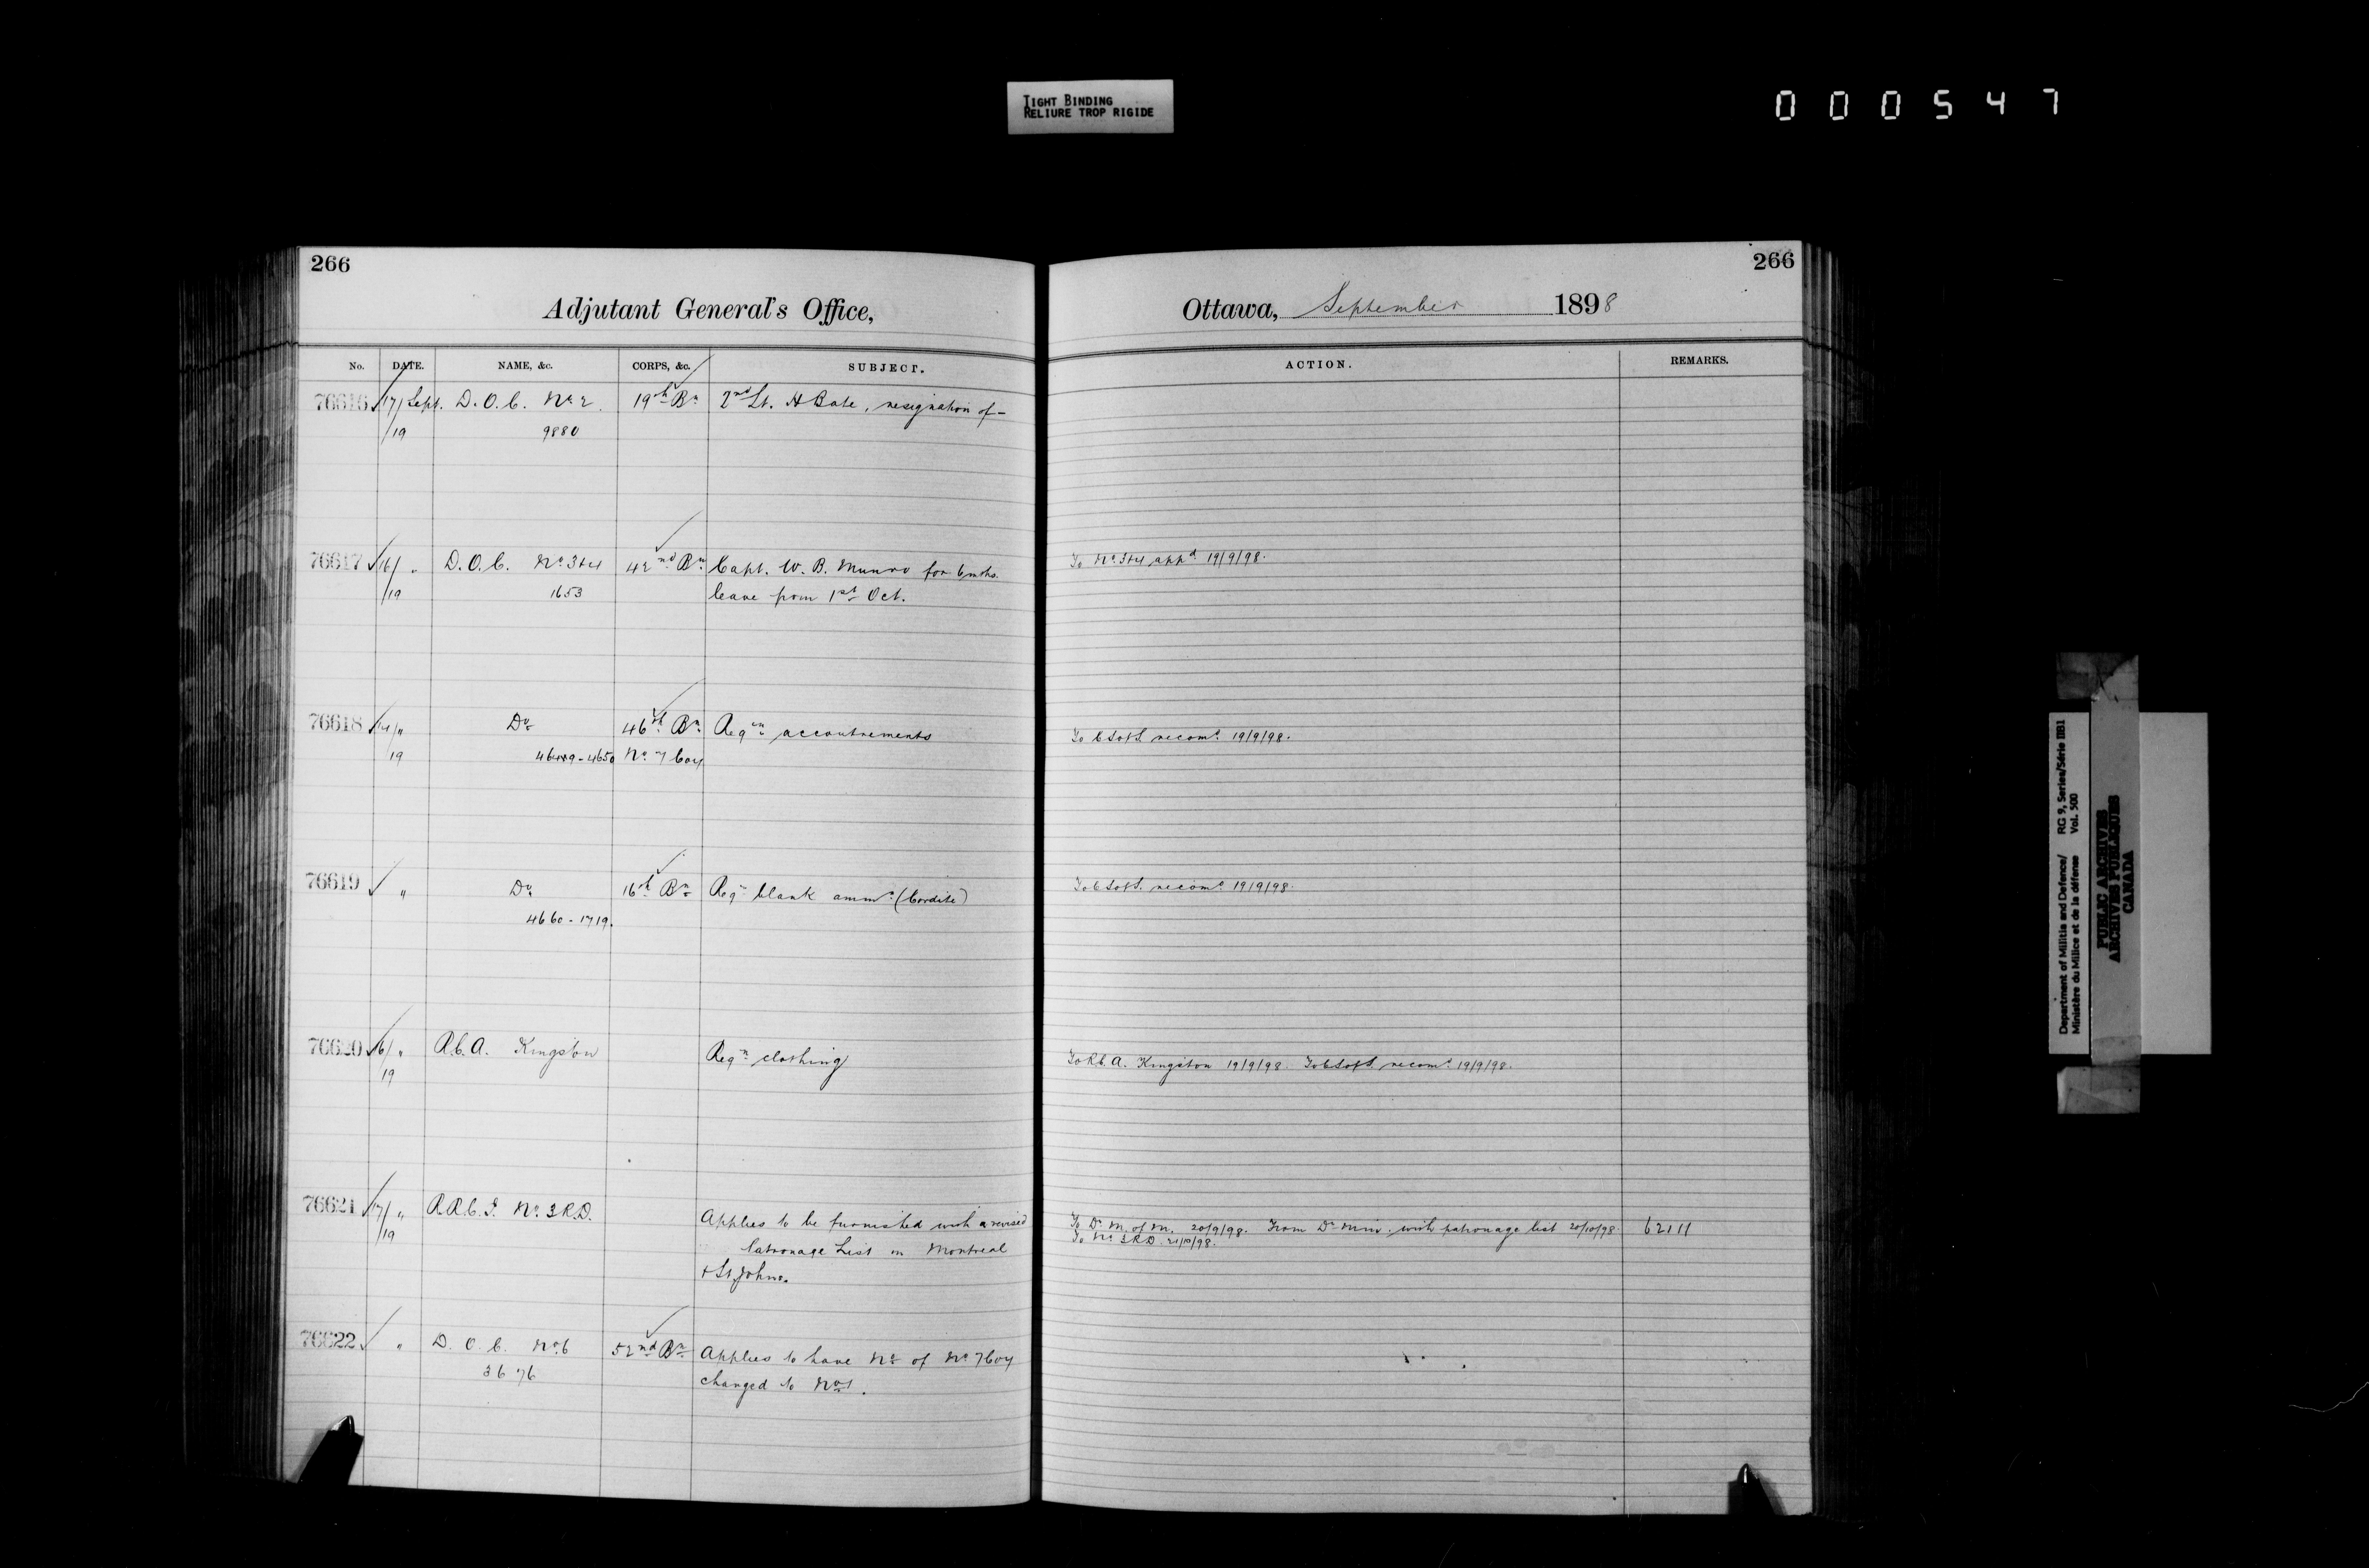 TIGHT BINDING
RELIURE TROP RIGIDE
000547
266
Adjutant General's Office,
No. DATE. NAME, &c. CORPS, &c. SUBJECT.
76616 17/ Sept. D.O.C. No 2. 19th Bn 2nd Lt. H Bate, resignation of –
/19 9880
76617 16/ " D.O.C. No 3+4 42nd Bn Capt. W. B. Munro for 6 mths.
/19 1653 leave from 1st Oct.
76618 14/ " Do 46th Bn Reqn accoutrements
19 4649-4650 No 7 Coy
76619 " Do 16th Bn Reqn blank ammn (Cordite)
4660-1719.
76620 16/ " R.C.A. Kingston Reqn clothing
19
76621 17/ " R.R.C.I. No. 3 R.D. Applies to be furnished with a revised
/19 Patronage List in Montreal
+ St Johns.
76622 " D.O.C. No 6 52nd Bn Applies to have No of No 7 Coy
3676 changed to No 1.
266
Ottawa, September 1898
ACTION. REMARKS.
To No 3+4 appd 19/9/98.
To C S of S. recomd 19/9/98.
To C S of S. recomd 19/9/98.
To R.C.A. Kingston 19/9/98. To C S of S. recomd 19/9/98.
To D. M. of M. 20/9/98. From D. Min. with patronage list 20/10/98. 62111
To No 3 R.D. 21/10/98.
Department of Militia and Defence/ RG 9, Series/Série IIB1
Ministère du Milice et de la défense Vol. 500
PUBLIC ARCHIVES
ARCHIVES PUBLIQUES
CANADA